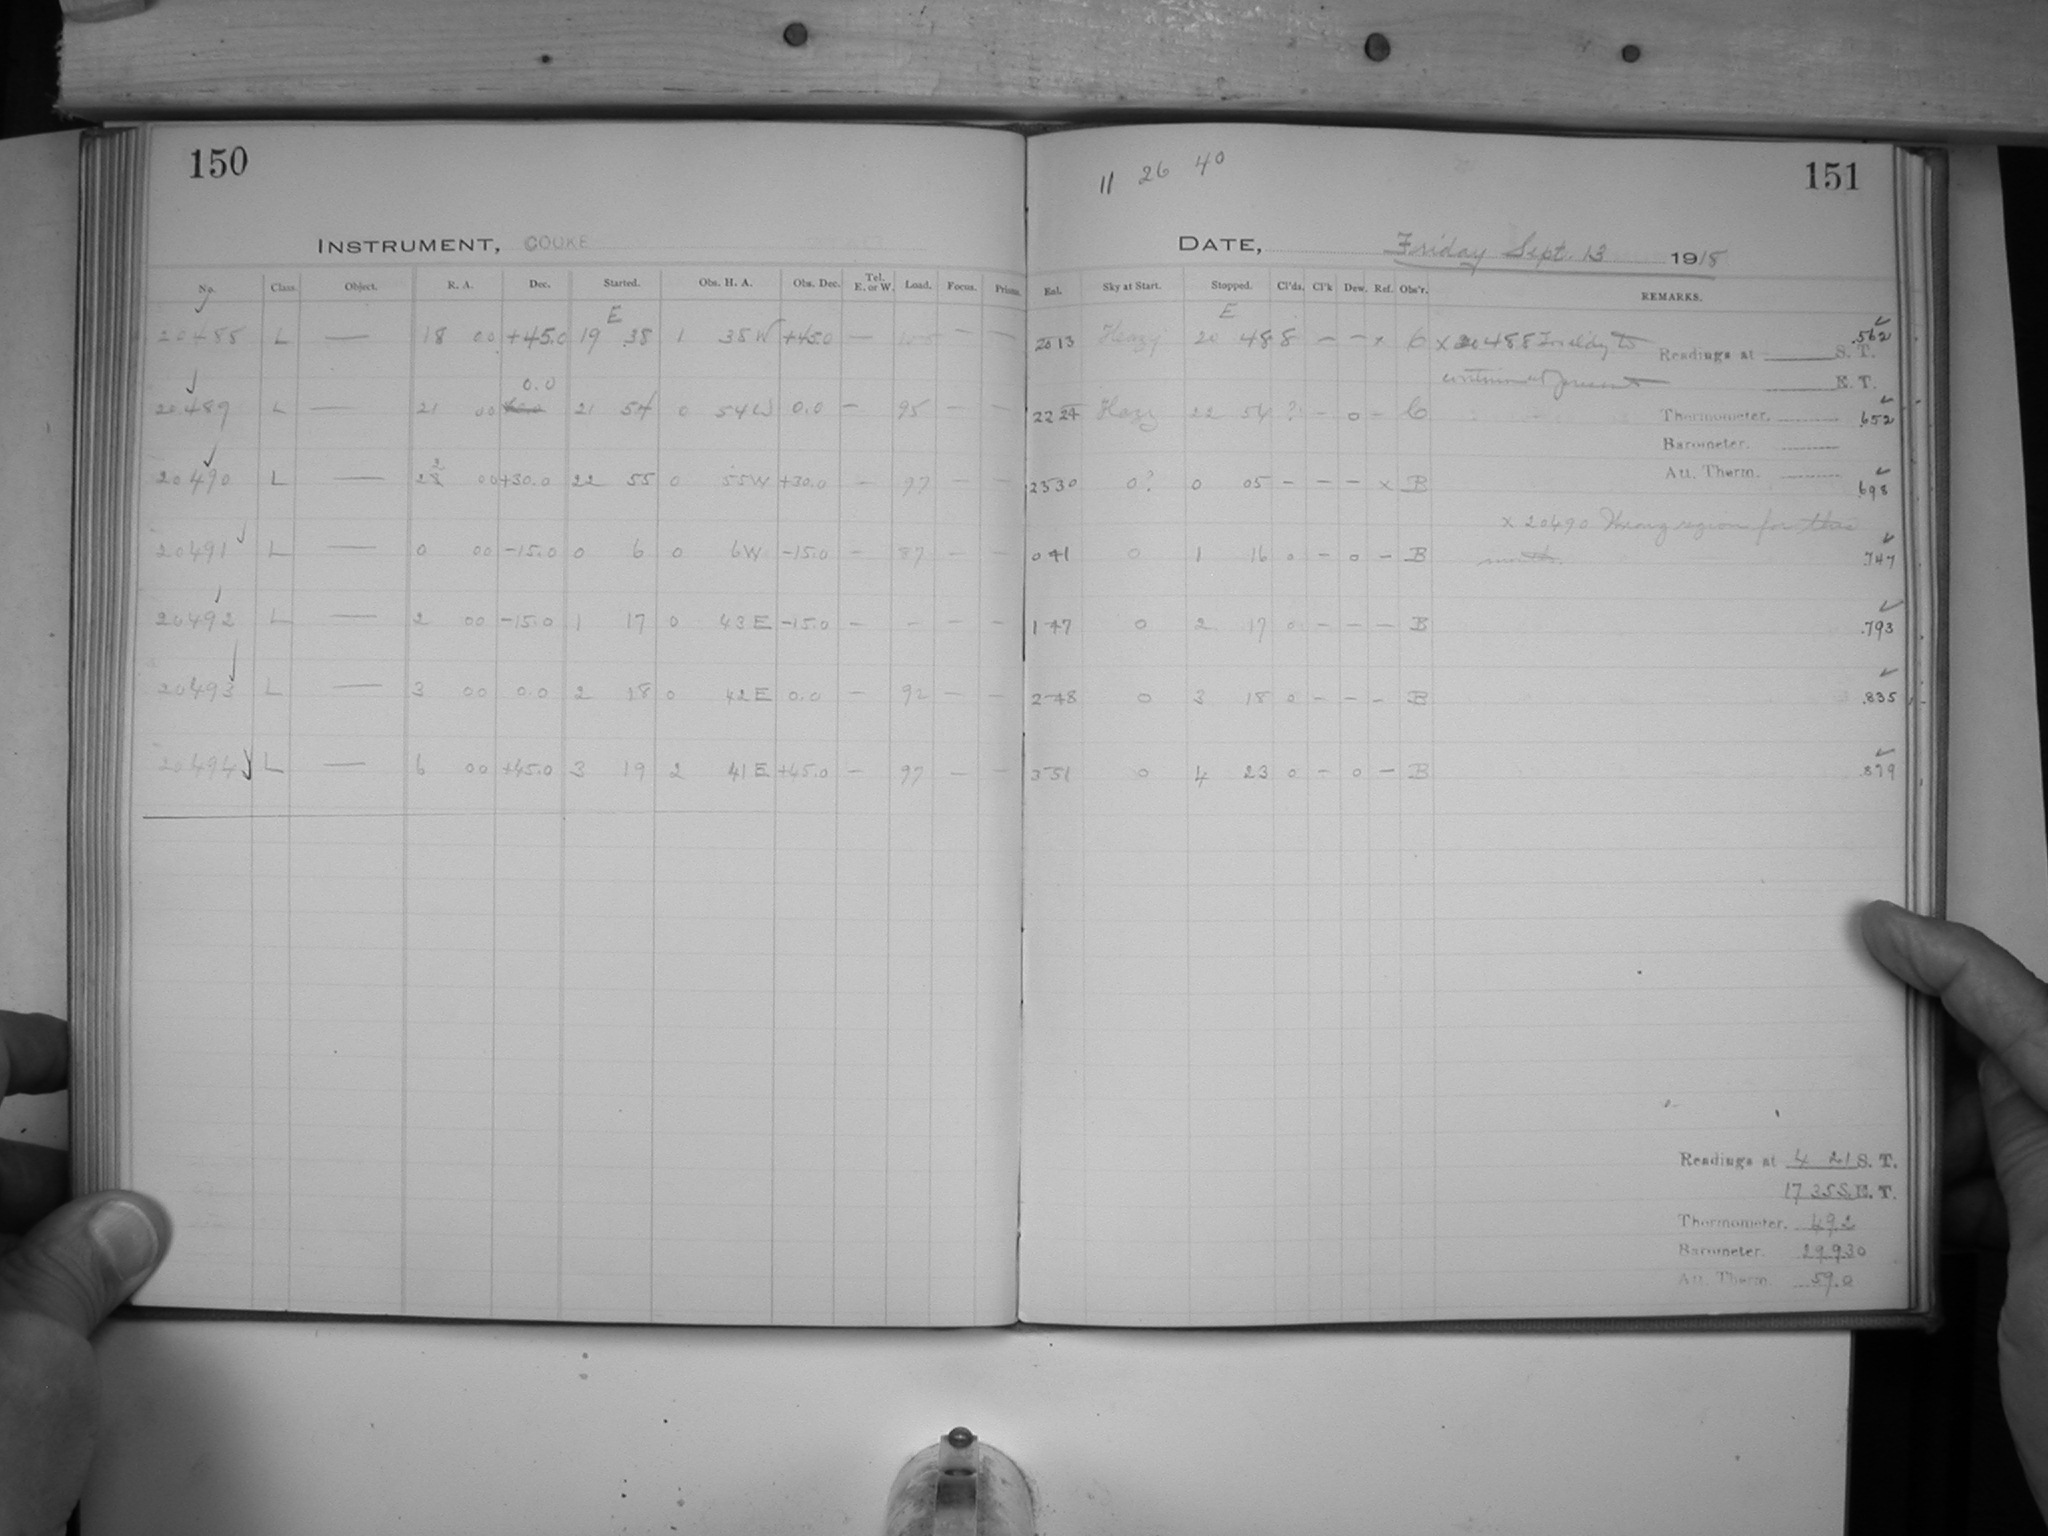 150
INSTRUMENT, COOKE
No. Class. Object. R. A. Dec. Started. Obs. H. A. Obs. Dec. Tel. E. or W. Load. Focus. Prisms.
E
20488 L — 18 00 +45.0 19 38 1 38 W +45.0 — — —
0.0
20489 L — 21 00 21 54 0 54 W 0.0 — 95
2
20490 L — 22 00 +30.0 22 55 0 55 W +30.0 — 97 — —
20491 L — 0 00 -15.0 0 6 0 6 W -15.0 — 87 — —
20492 L — 2 00 -15.0 1 17 0 43 E -15.0 — - — —
20493 L — 3 00 0.0 2 18 0 42 E 0.0 — 92 — —
20494 L — 6 00 +45.0 3 19 2 41 E +45.0 — 97 — —
11 26 40
151
DATE, Friday Sept. 13 1918
Eql. Sky at Start. Stopped. Cl'ds. Cl'k Dew. Ref. Obs'r. REMARKS.
E
20 13 Heazy 20 48 8 — — x C x 20488 to .562
Readings at S. T.
present
E. T.
22 24 Hazy 22 54 ? - 0 - C Thermometer. .652
Barometer.
23 30 0? 0 05 - - - x B Att. Therm. .698
x 20490 Wrong region for this
month.
0 41 0 1 16 0 - 0 - B .747
1 47 0 2 17 0 - - - B .793
2 48 0 3 18 0 - - - B .835
3 51 0 4 23 0 - 0 - B .879
Readings at 4 21 S. T.
17 35 S. E. T.
Thermometer. 49.2
Barometer. 29.930
Att. Therm. 59.0